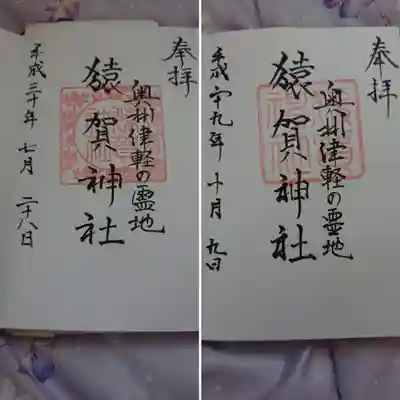 奉拝
奥州津軽の霊地
猿賀神社
平成三十年 七月 二十八日
奉拝
奥州津軽の霊地
猿賀神社
平成廿九年 十月 九日